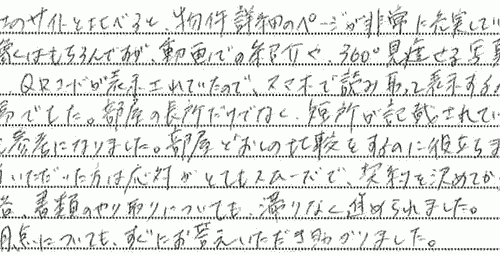 のサイトと比べると、物件詳細のページが非常に充実してい
はもちろんですが、動画での紹介や360°見渡せる写真
QRコードが表示されていたので、スマホで読み取って表示する
でした。部屋の長所だけでなく、短所が記載されてい
参考になりました。部屋どおしの比較をするのに役立ちま
いただいた方は応対がとてもスムーズで、契約を決めてか
書類のやり取りについても、滞りなく進められました。
点についても、すぐにお答えいただき助かりました。